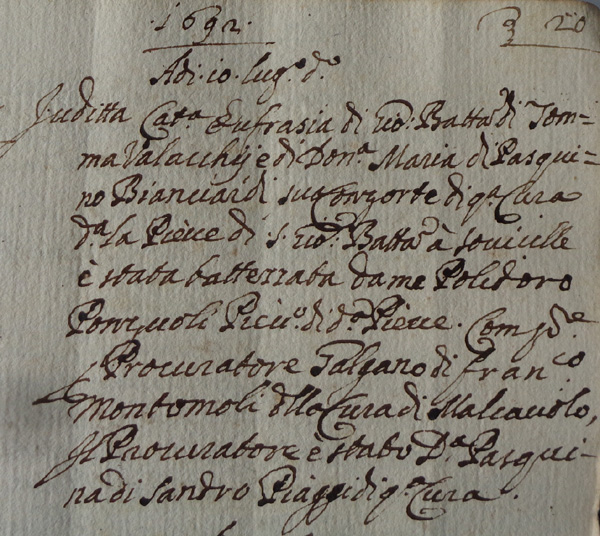 1692. 20
Adi. 10. lug.o d.o
Juditta Cat.a Eufrasia di Gio: Batta di Tom=
ma Valacchij e di Don.a Maria di Pasqui=
no Bianciardi sua Consorte di q.a Cura
d.a la Pieve di S. Gio: Batta à Sovicille
è stata battezzata da me Polidoro
Ponzuoli Piev.o di d.a Pieve. Comp.e
Procuratore Galgano di Fran.co
Montomoli dlla Cura di Malcavolo,
Il Procuratore è stato D.a Pasqui=
na di Sandro Piaggi di q.a Cura.